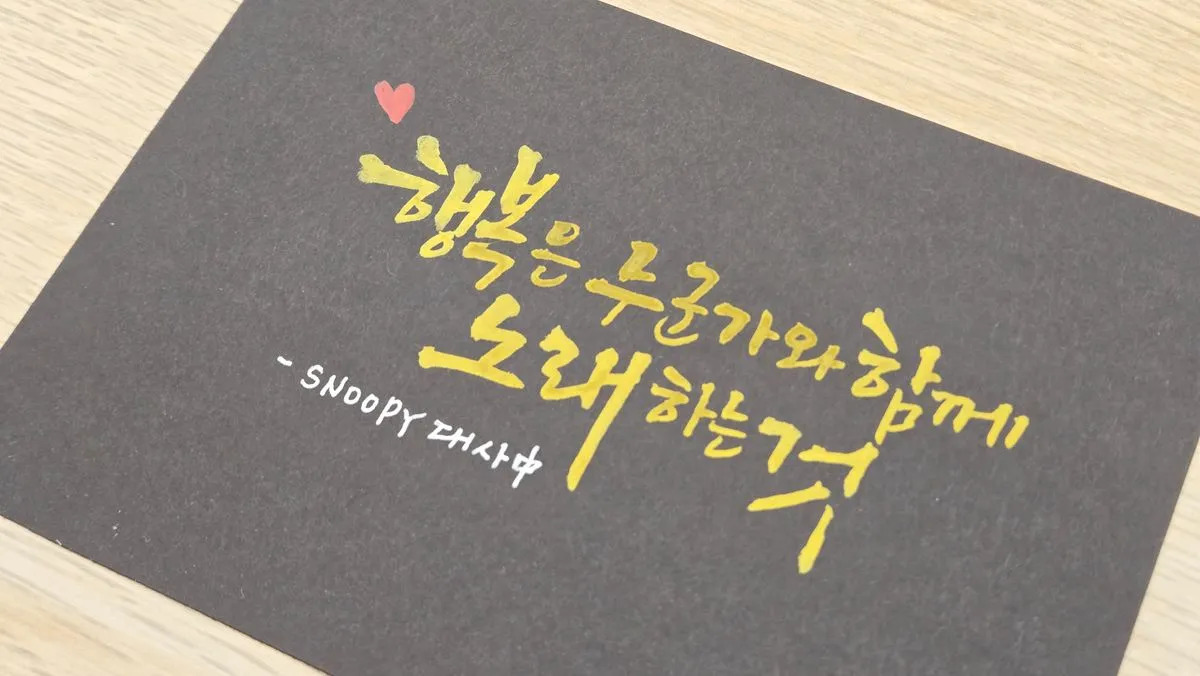 행복은 무군가와 함께
노래하는 것
- SNOOPY 대사中